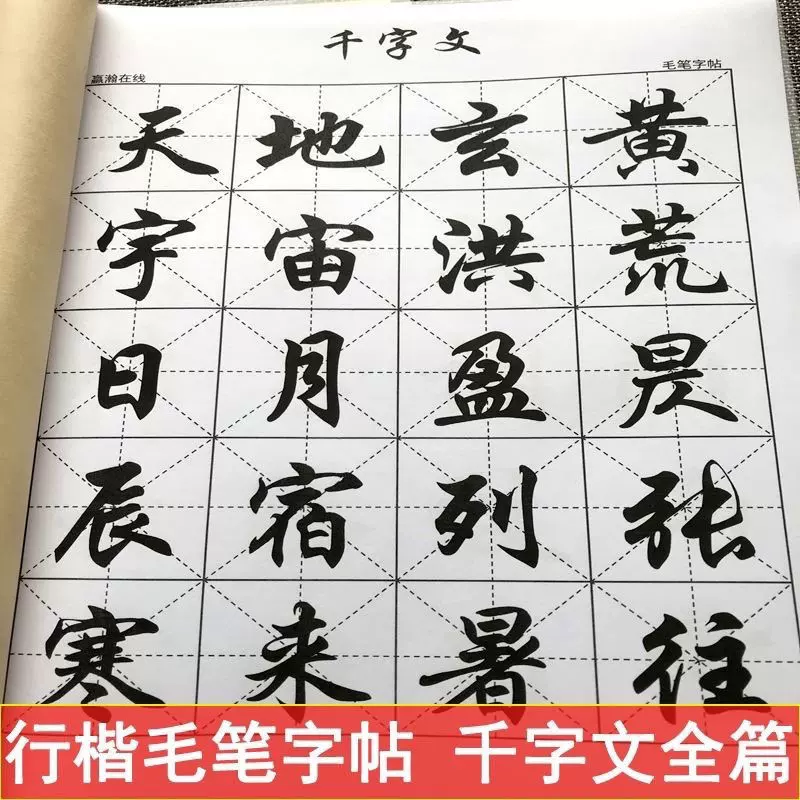 千字文
赢瀚在线
毛笔字帖
天地玄黄
宇宙洪荒
日月盈昃
辰宿列张
寒来暑往
行楷毛笔字帖 千字文全篇